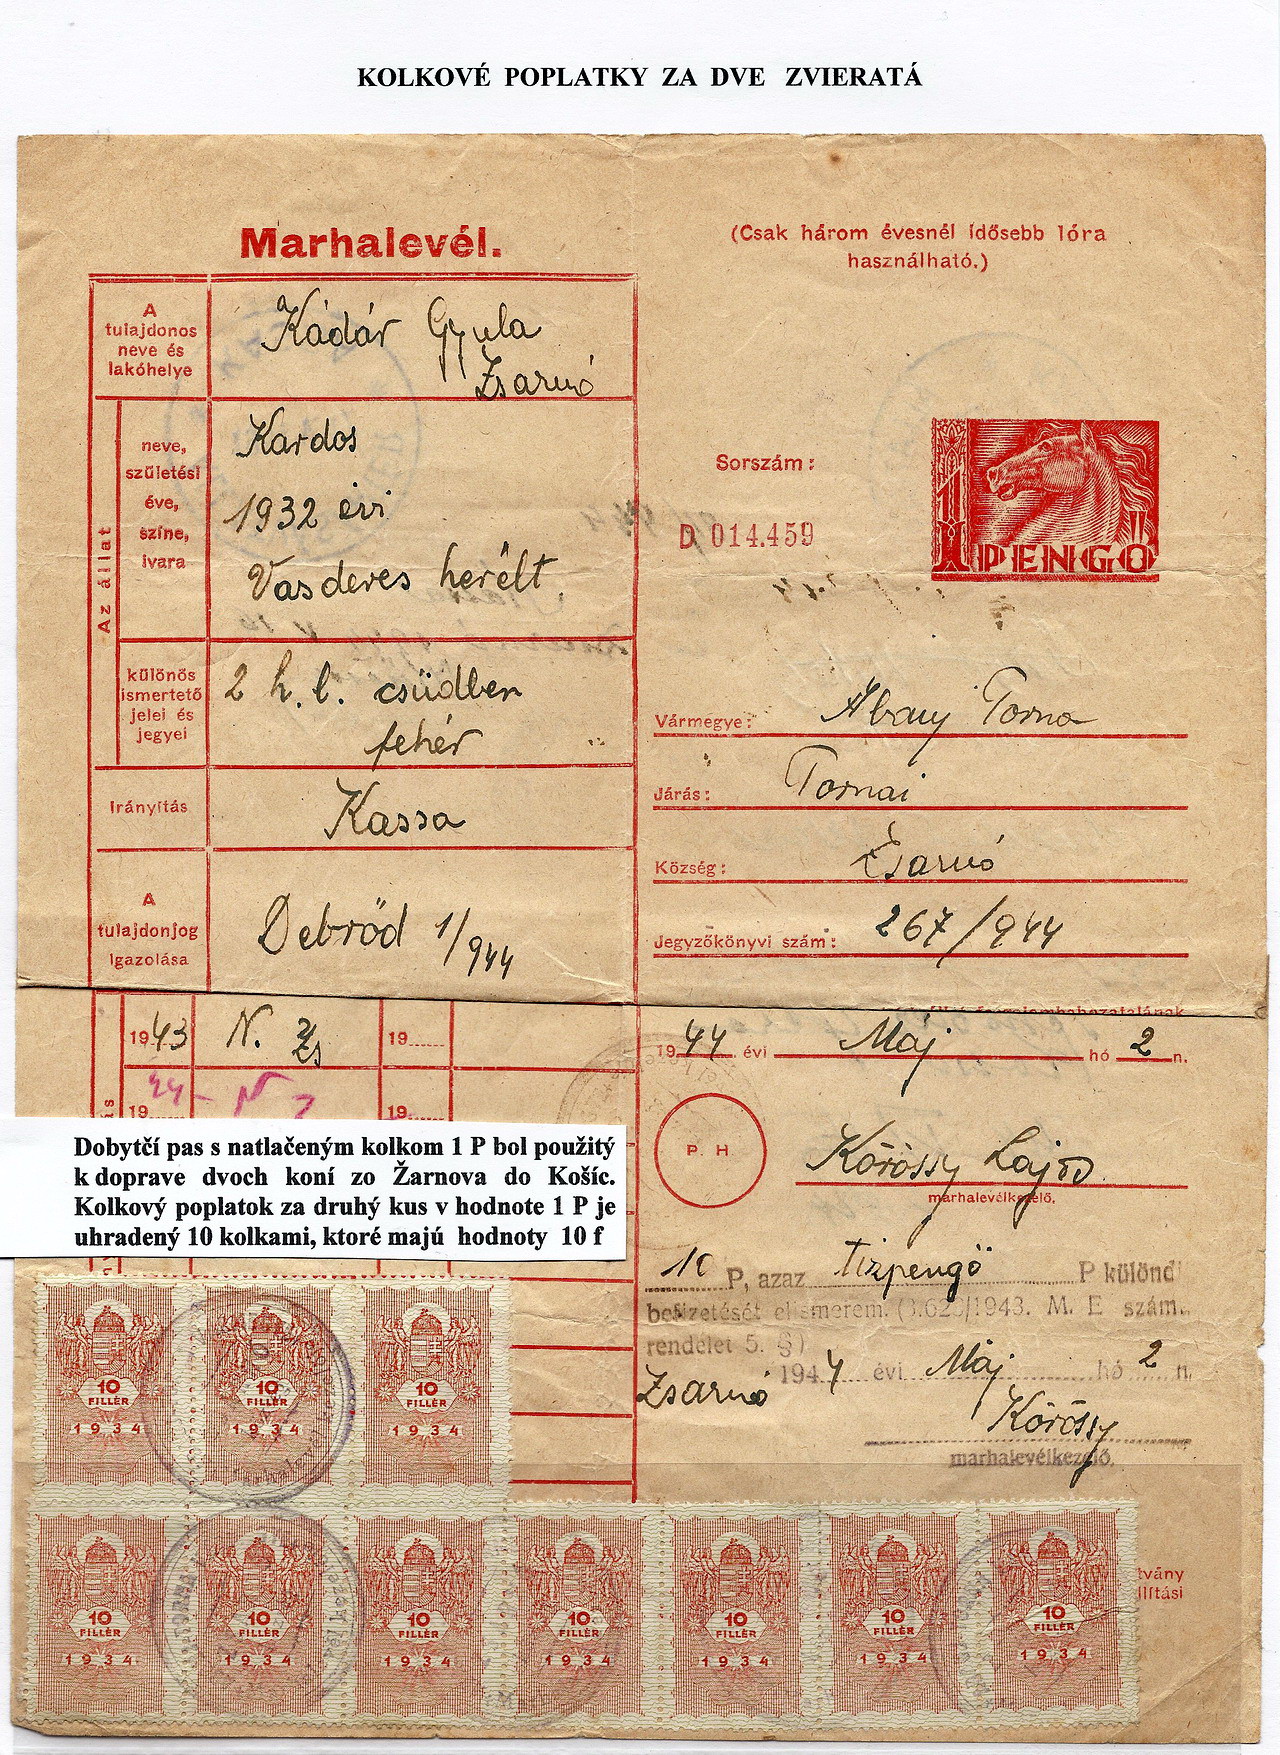 KOLKOVÉ POPLATKY ZA DVE ZVIERATÁ
Marhalevél.
(Csak három évesnél idősebb lóra
használható.)
A
tulajdonos
neve és
lakóhelye
Kádár Gyula
Zsarnó
Az állat
neve,
születési
éve,
színe,
ivara
Kardos
1932 évi
Vasderes herélt
különös
ismertető
jelei és
jegyei
2 h. l. csüdben
fehér
Irányítás
Kassa
A
tulajdonjog
igazolása
Debrőd 1/944
Sorszám:
D 014.459
1 PENGŐ
Vármegye: Abauj Torna
Járás: Tornai
Község: Zsarnó
Jegyzőkönyvi szám: 267/944
1943 N. Zs
19
44 - N
19
19
1944 évi Máj hó 2 n.
P. H
Kőrössy Lajos
marhalevélkezelő.
Dobytčí pas s natlačeným kolkom 1 P bol použitý
k doprave dvoch koní zo Žarnova do Košíc.
Kolkový poplatok za druhý kus v hodnote 1 P je
uhradený 10 kolkami, ktoré majú hodnoty 10 f
10 P, azaz tizpengő P különdí
befizetését elismerem. (3.620/1943. M. E szám.
rendelet 5. §)
Zsarnó 1944 évi Máj hó 2 n.
Kőrössy
marhalevélkezelő.
10 FILLÉR 1934
10 FILLÉR 1934
10 FILLÉR 1934
10 FILLÉR 1934
10 FILLÉR 1934
10 FILLÉR 1934
10 FILLÉR 1934
10 FILLÉR 1934
10 FILLÉR 1934
10 FILLÉR 1934
tvány
llítási